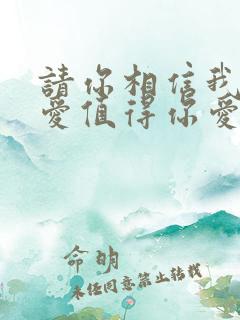 請你相信我
愛值得你愛
命明
未任同意禁止转载